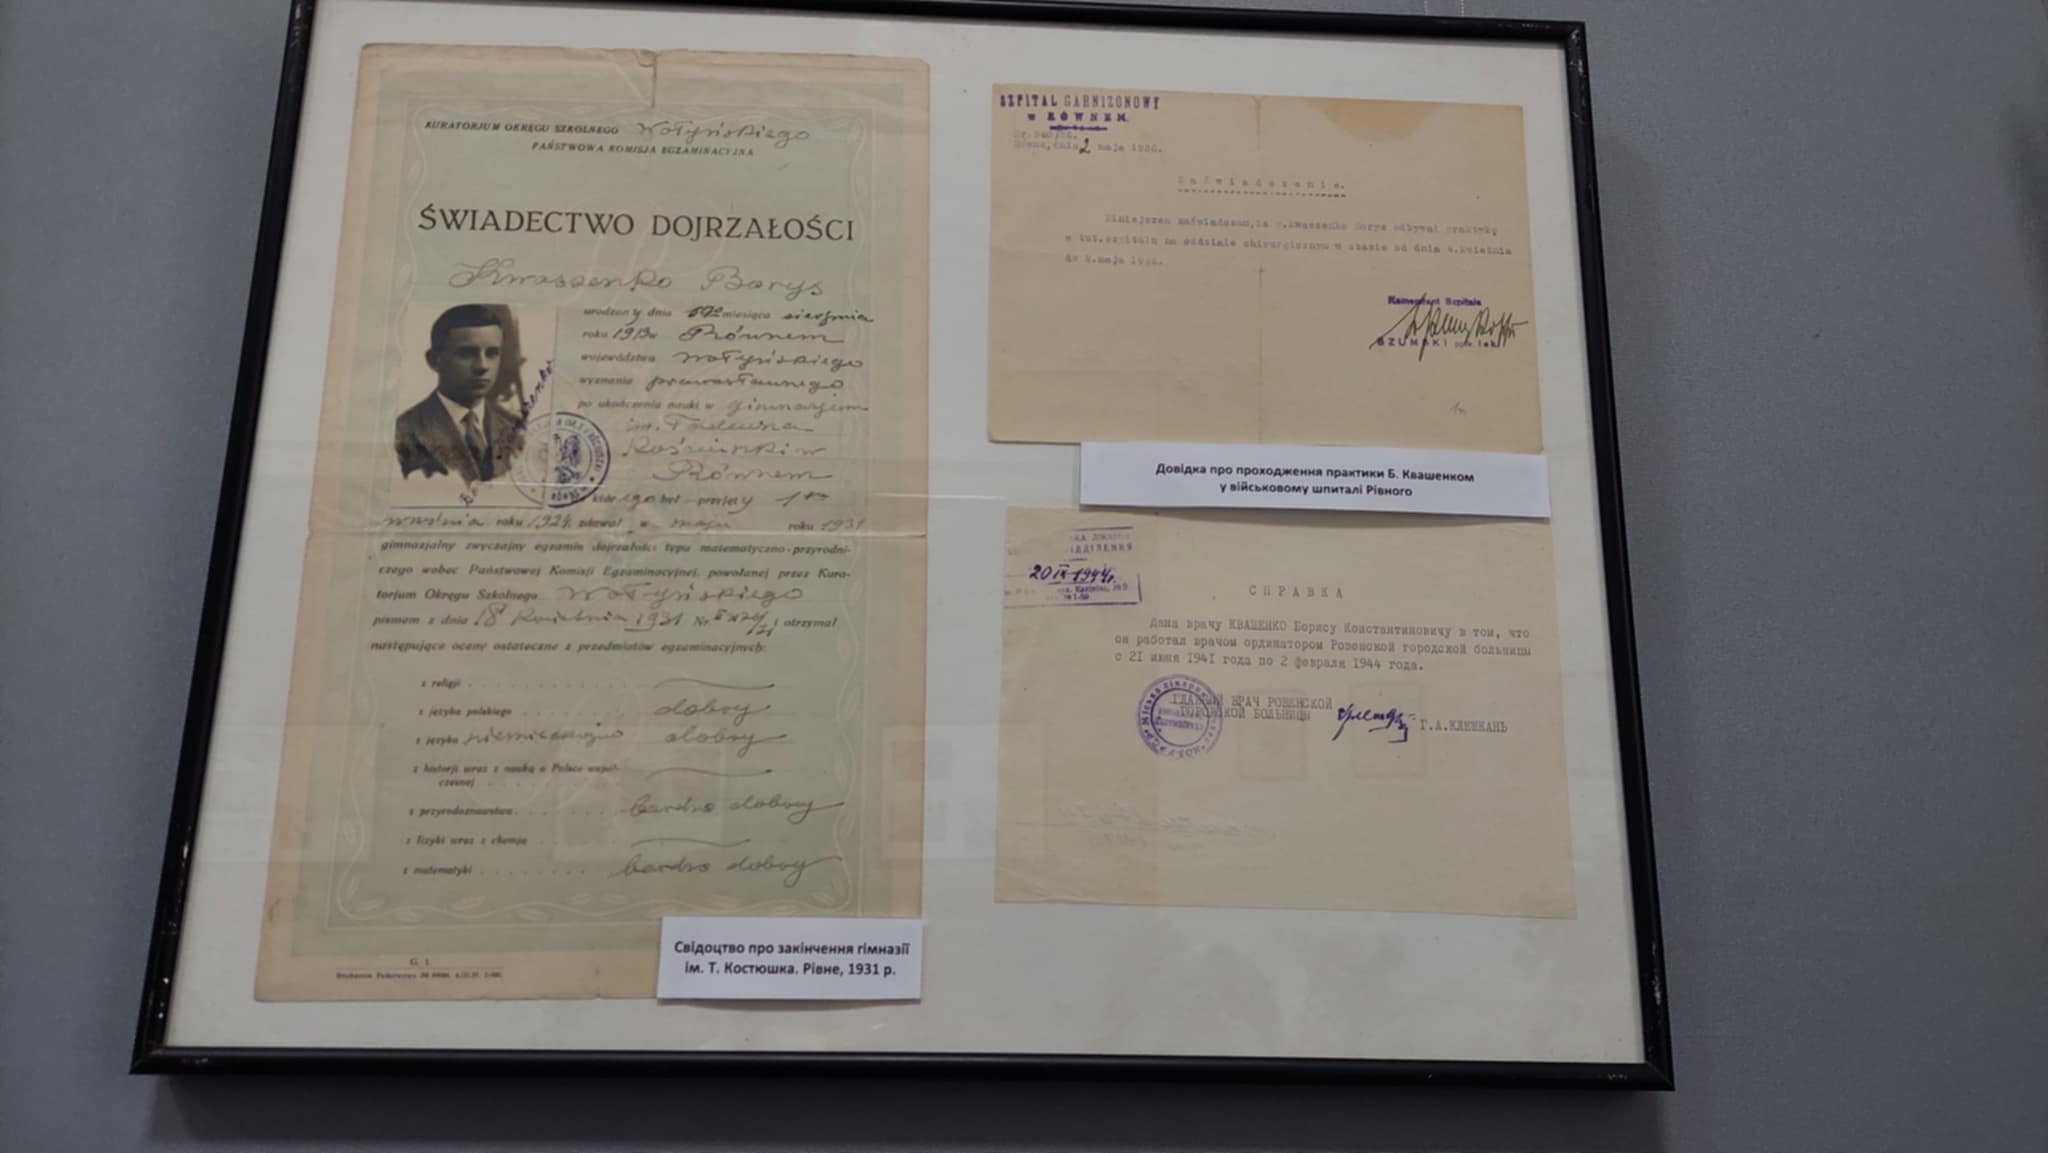 KURATORJUM OKRĘGU SZKOLNEGO Wołyńskiego
PAŃSTWOWA KOMISJA EGZAMINACYJNA
ŚWIADECTWO DOJRZAŁOŚCI
Kwaszenko Borys
urodzony dnia miesiąca sierpnia
roku 1913 w Równem
województwa Wołyńskiego
wyznania prawosławnego
po ukończeniu nauki w gimnazjum
im. Tadeusza
Kościuszki w
Równem
którego był przyjęty 1
września roku 1924 zdawał w maju roku 1931
gimnazjalny zwyczajny egzamin dojrzałości typu matematyczno-przyrodni-
czego wobec Państwowej Komisji Egzaminacyjnej, powołanej przez Kura-
torjum Okręgu Szkolnego Wołyńskiego
pismem z dnia 18 kwietnia 1931 Nr. i otrzymał
następujące oceny ostateczne z przedmiotów egzaminacyjnych:
z religji
z języka polskiego dobry
z języka niemieckiego dobry
z historji wraz z nauką o Polsce współ-
czesnej
z przyrodoznawstwa bardzo dobry
z fizyki wraz z chemją
z matematyki bardzo dobry
G. 1.
Свідоцтво про закінчення гімназії
ім. Т. Костюшка. Рівне, 1931 р.
SZPITAL GARNIZONOWY
w RÓWNEM
Równe, dnia 2 maja 1936.
Zaświadczenie.
Niniejszem zaświadczam, że p. Kwaszenko Borys odbywał praktykę
w tut. szpitalu na oddziale chirurgicznym w czasie od dnia kwietnia
do maja 1936.
Komendant Szpitala
SZUMSKI ppłk. lek.
Довідка про проходження практики Б. Квашенком
у військовому шпиталі Рівного
20 IX 1944г.
СПРАВКА
Дана врачу КВАШЕНКО Борису Константиновичу в том, что
он работал врачом ординатором Ровенской городской больницы
с 21 июня 1941 года по 2 февраля 1944 года.
ГЛАВНЫЙ ВРАЧ РОВЕНСКОЙ
ГОРОДСКОЙ БОЛЬНИЦЫ
Г.А.КЛЕШКАНЬ